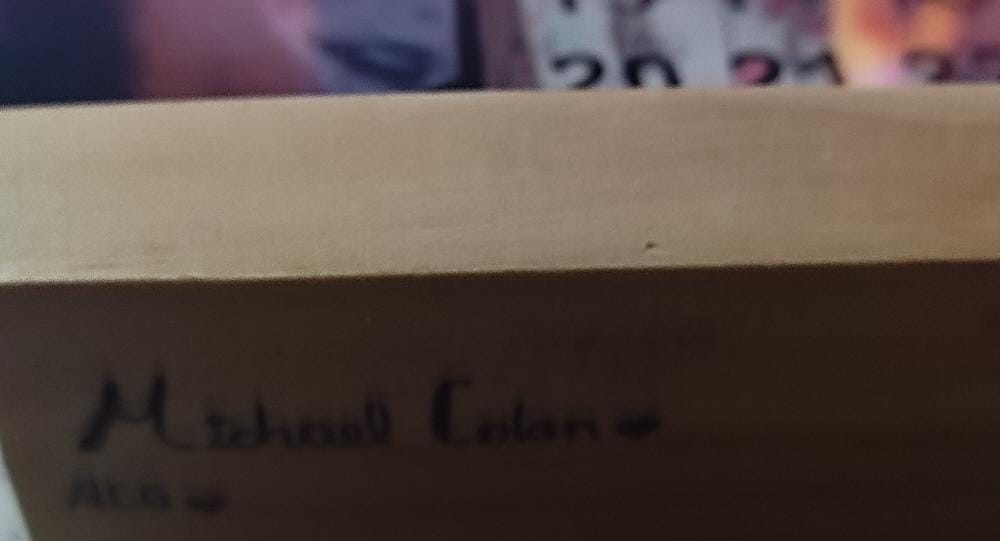 20 21
Michael Colon ♥
ACG ♥